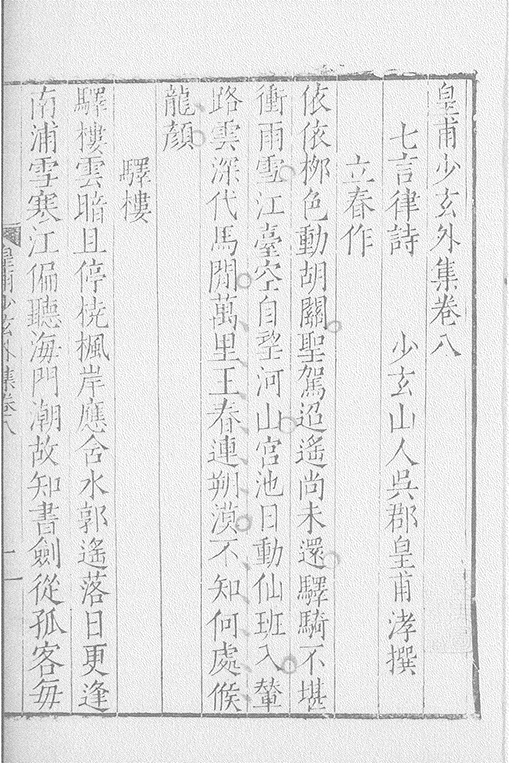 皇甫少玄外集卷八
七言律詩　少玄山人吳郡皇甫涍撰
立春作
依依桺色動胡關聖駕迢遙尚未還驛騎不堪
衝雨雪江臺空自望河山宮池日動仙班入輦
路雲深代馬閒萬里王春連朔漠不知何處候
龍顏
驛樓
驛樓雲暗且停橈楓岸應含水郭遙落日更逢
南浦雪寒江偏聽海門潮故知書劍從孤客每
皇甫少玄外集卷八